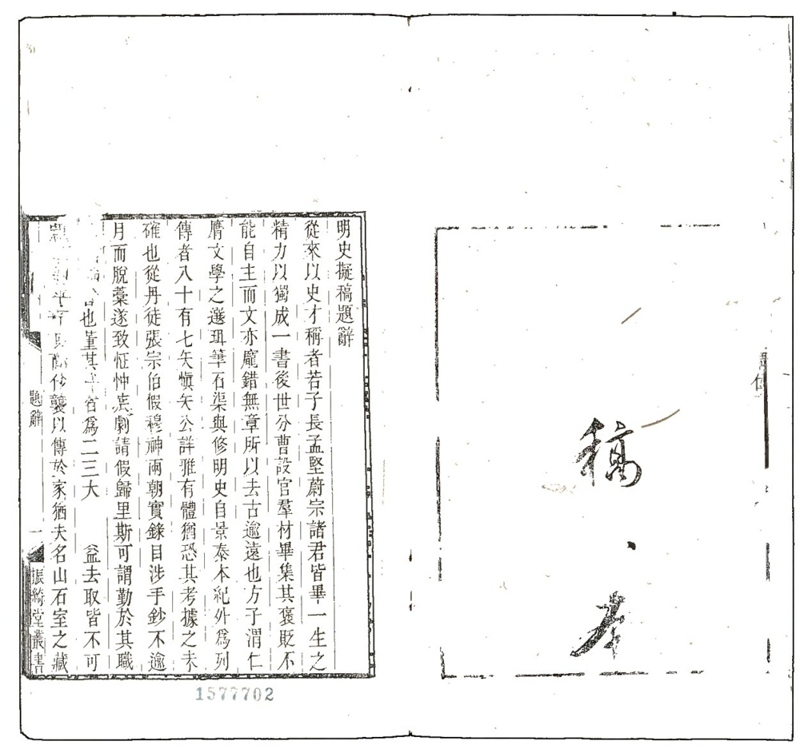 稿
明史擬稿題辭
從來以史才稱者若子長孟堅蔚宗諸君皆畢一生之
精力以獨成一書後世分曹設官羣材畢集其褒貶不
能自主而文亦龐錯無章所以去古逾遠也方子渭仁
膺文學之選珥筆石渠與修明史自景泰本紀外爲列
傳者八十有七矢愼矢公詳雅有體猶恐其考據之未
確也從丹徒張宗伯假穆神兩朝實錄目涉手鈔不逾
月而脫藁遂致怔忡疾劇請假歸里斯可謂勤於其職
也董其 爲二三大 益去取皆不可
襲以傳於家猶夫名山石室之藏
題辭 一 振綺堂叢書
1577702